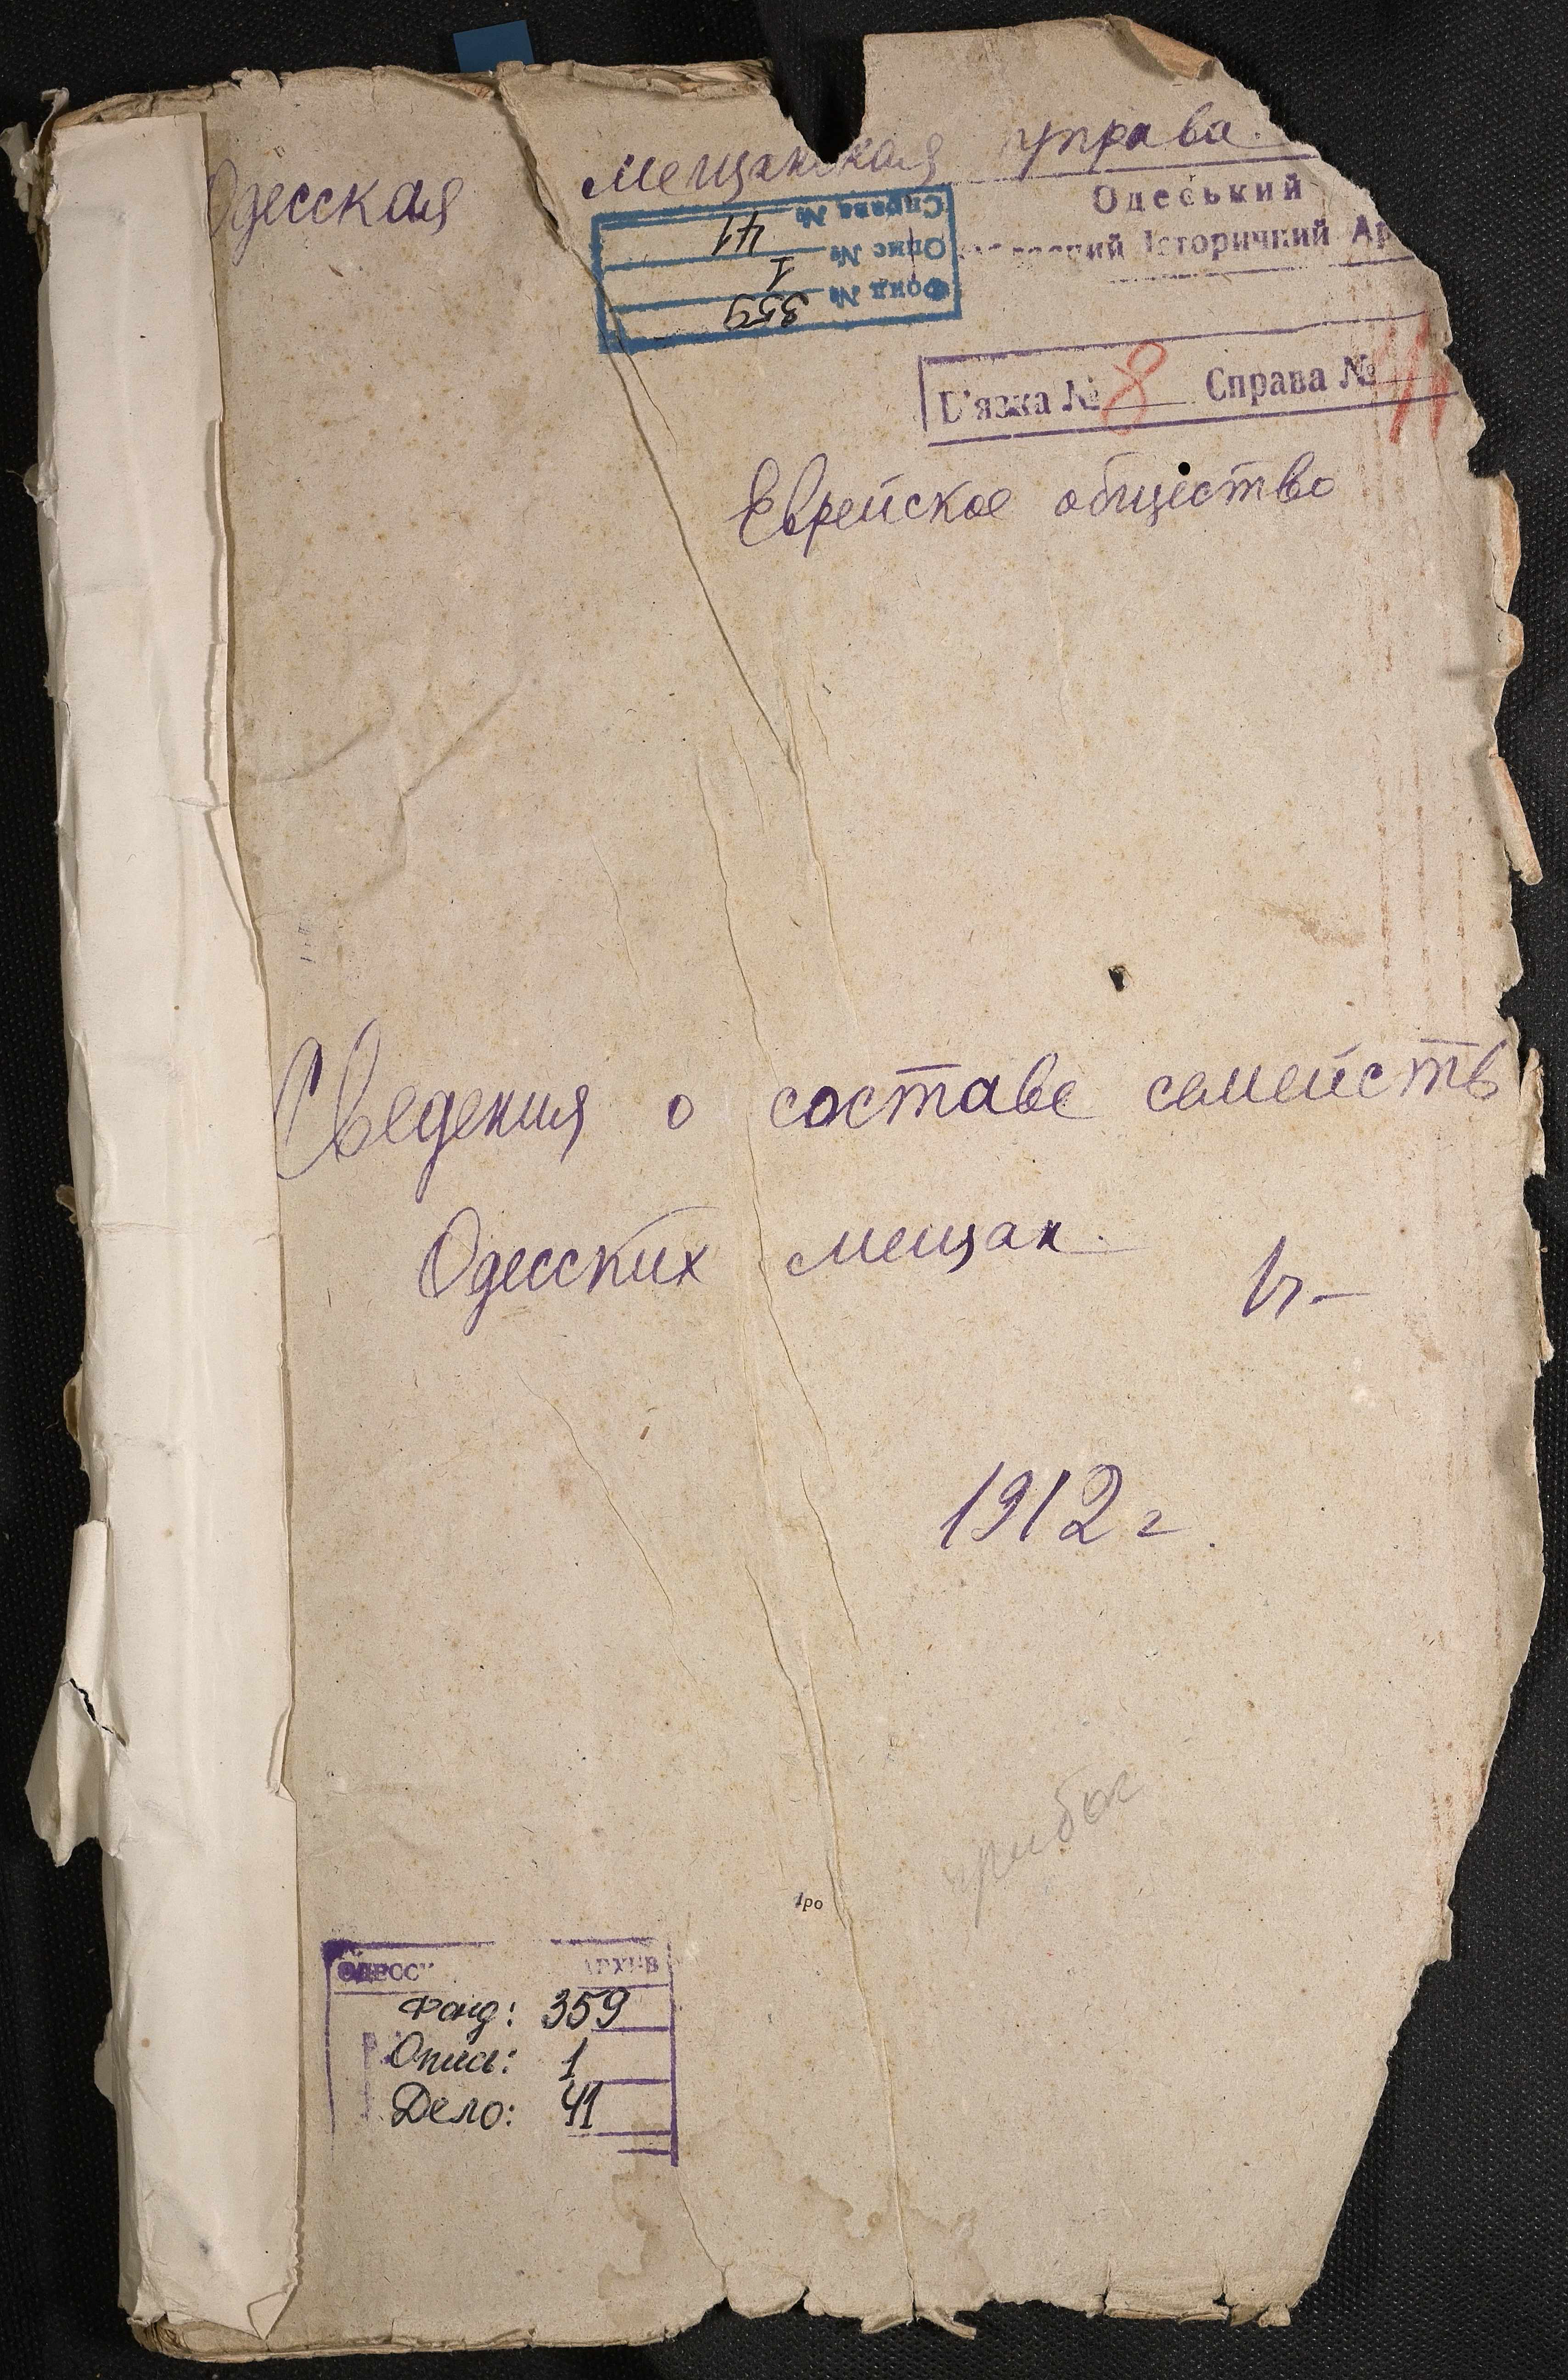 Одесская мещанская управа.
Одеський
Історичний Ар
Справа № 41
Опис № 1
Фонд № 359
В'язка № 8 Справа №
Еврейское общество
Сведения о составе семейств
Одесских мещан.
1912 г.
грибок
Фонд: 359
Опись: 1
Дело: 41